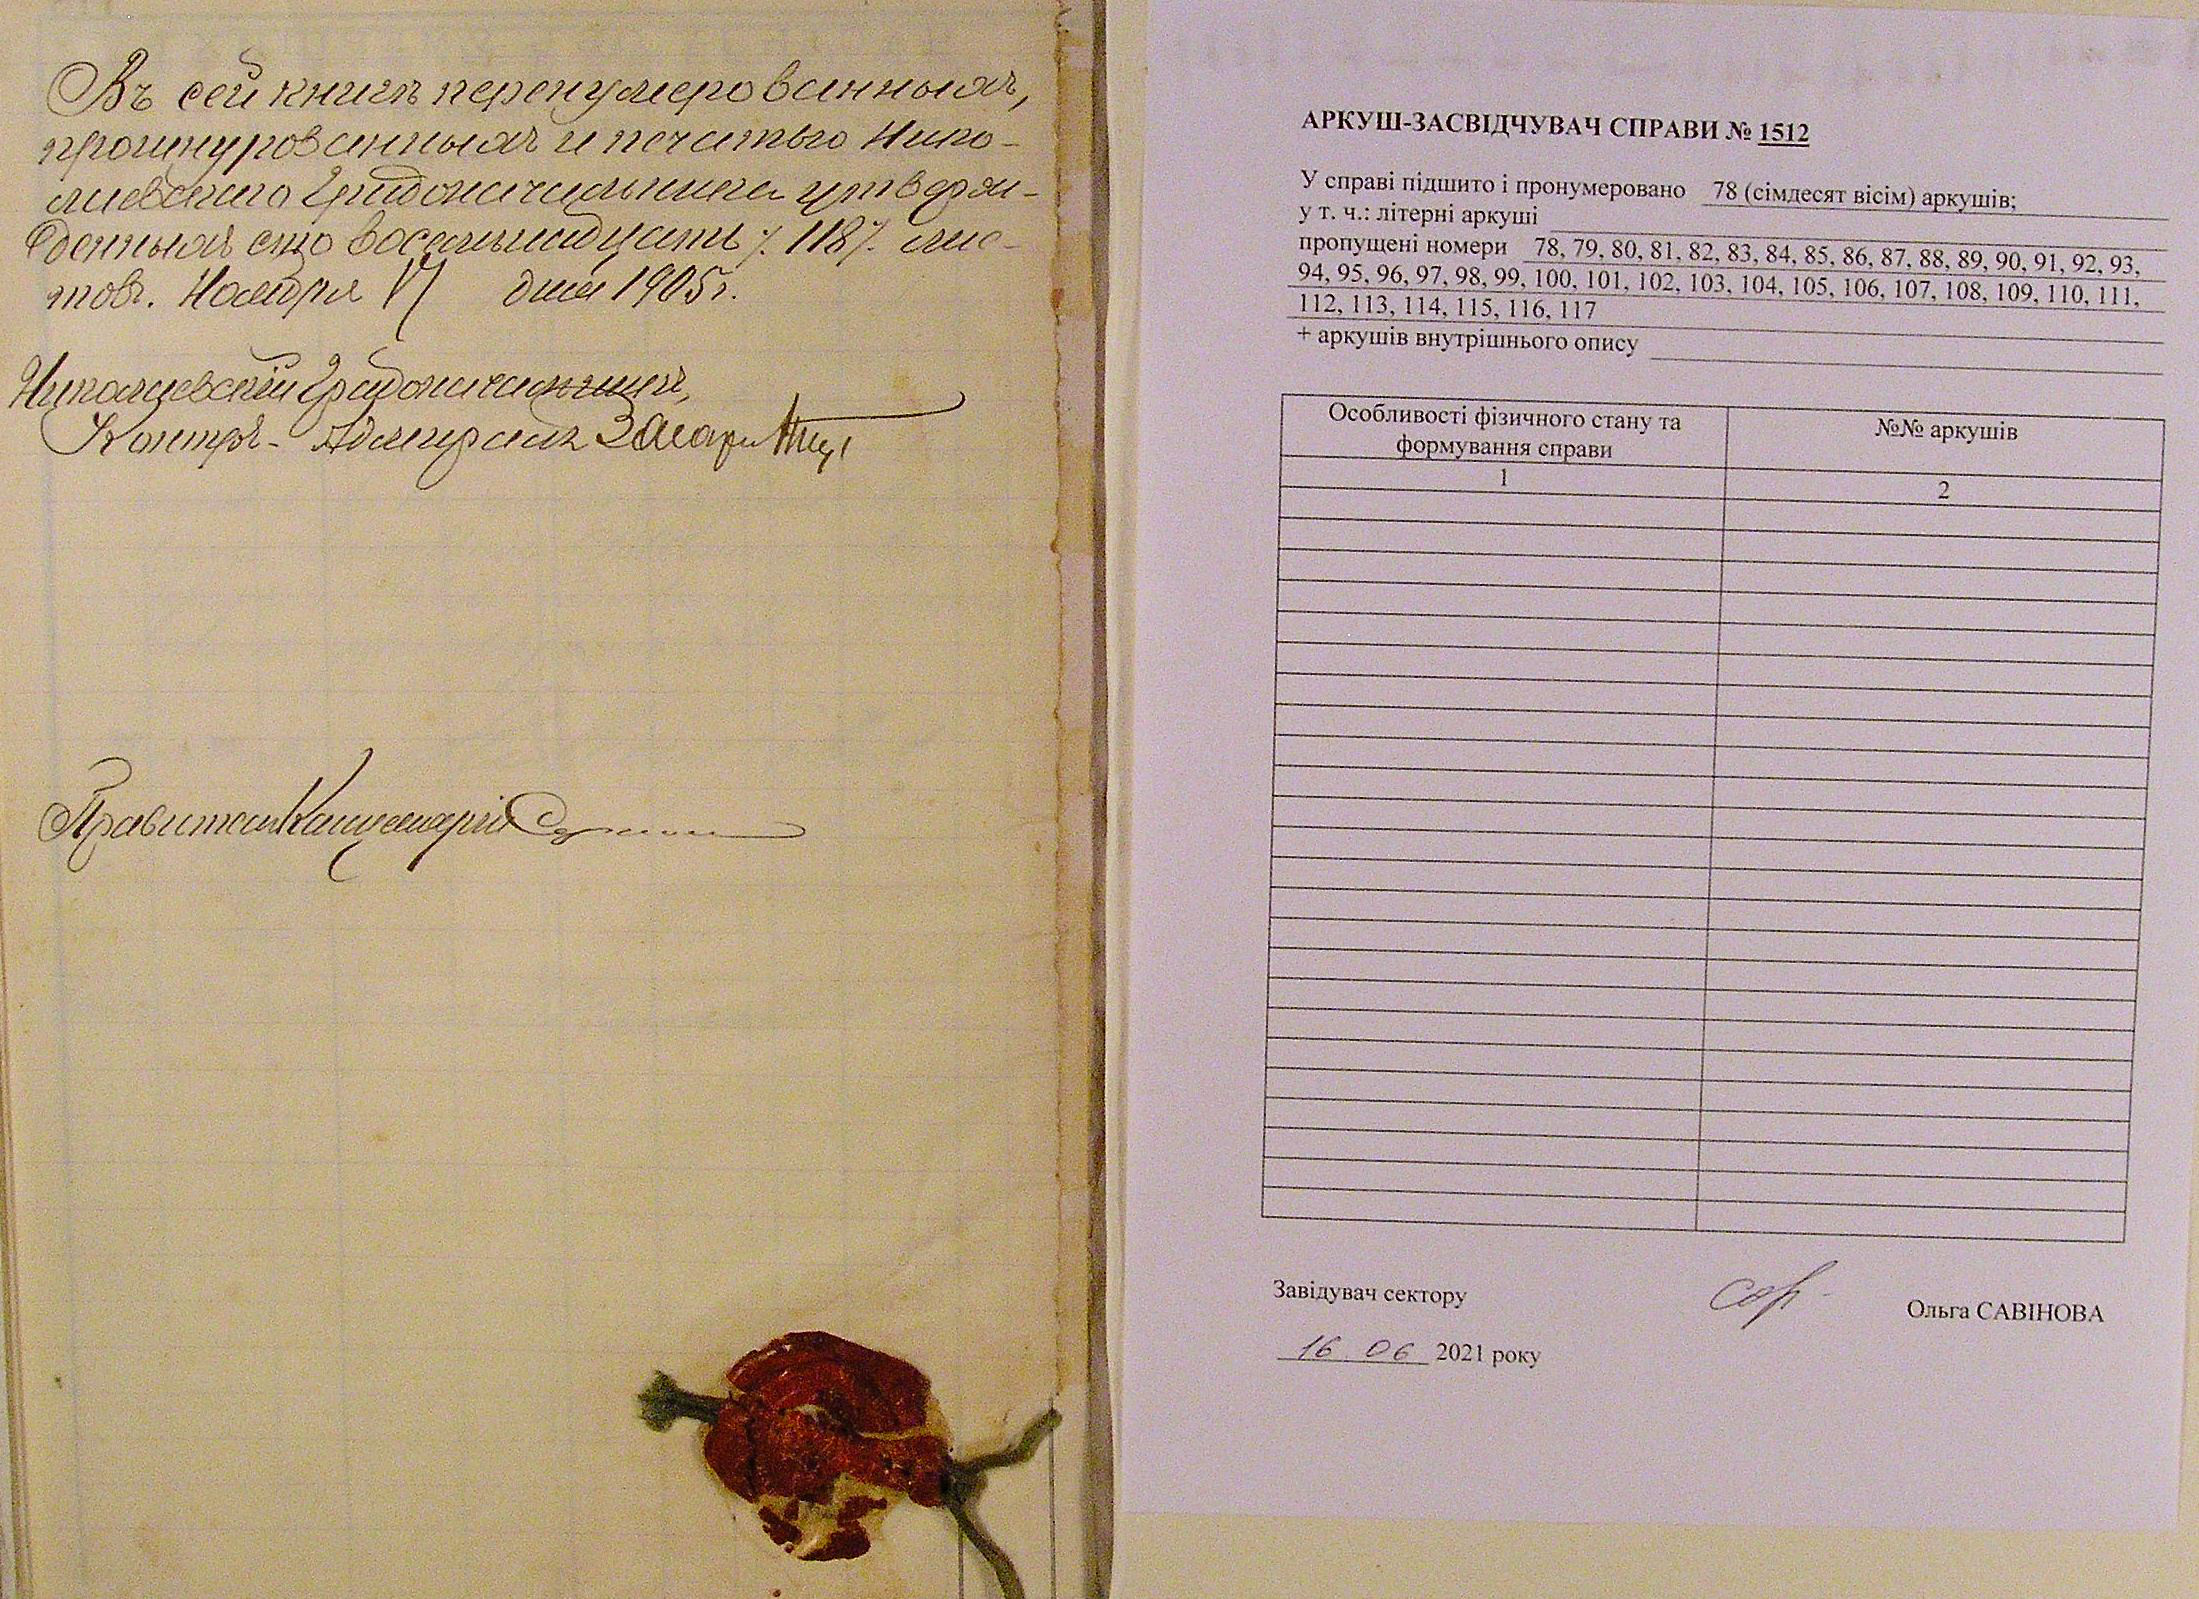 Въ сей книгѣ перенумерованныхъ,
прошнурованныхъ и печатью Нико-
лаевскаго Градоначальника утверж-
денныхъ сто восемьнадцать /118/. лис-
товъ. Ноября дня 1905 г.
Николаевскій Градоначальникъ,
Контръ-Адмиралъ
Правитель Канцеляріи
АРКУШ-ЗАСВІДЧУВАЧ СПРАВИ № 1512
У справі підшито і пронумеровано 78 (сімдесят вісім) аркушів;
у т. ч.: літерні аркуші
пропущені номери 78, 79, 80, 81, 82, 83, 84, 85, 86, 87, 88, 89, 90, 91, 92, 93,
94, 95, 96, 97, 98, 99, 100, 101, 102, 103, 104, 105, 106, 107, 108, 109, 110, 111,
112, 113, 114, 115, 116, 117
+ аркушів внутрішнього опису
Особливості фізичного стану та
формування справи
№№ аркушів
1
2
Завідувач сектору
Ольга САВІНОВА
16 06 2021 року